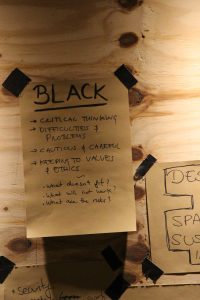 BLACK
→ CRITICAL THINKING
→ DIFFICULTIES &
PROBLEMS
→ CAUTIOUS & CAREFUL
→ KEEPING TO VALUES
& ETHICS
• What doesn't fit?
• What will not work?
• What are the risks?
DES
SPA
SUS
• Security